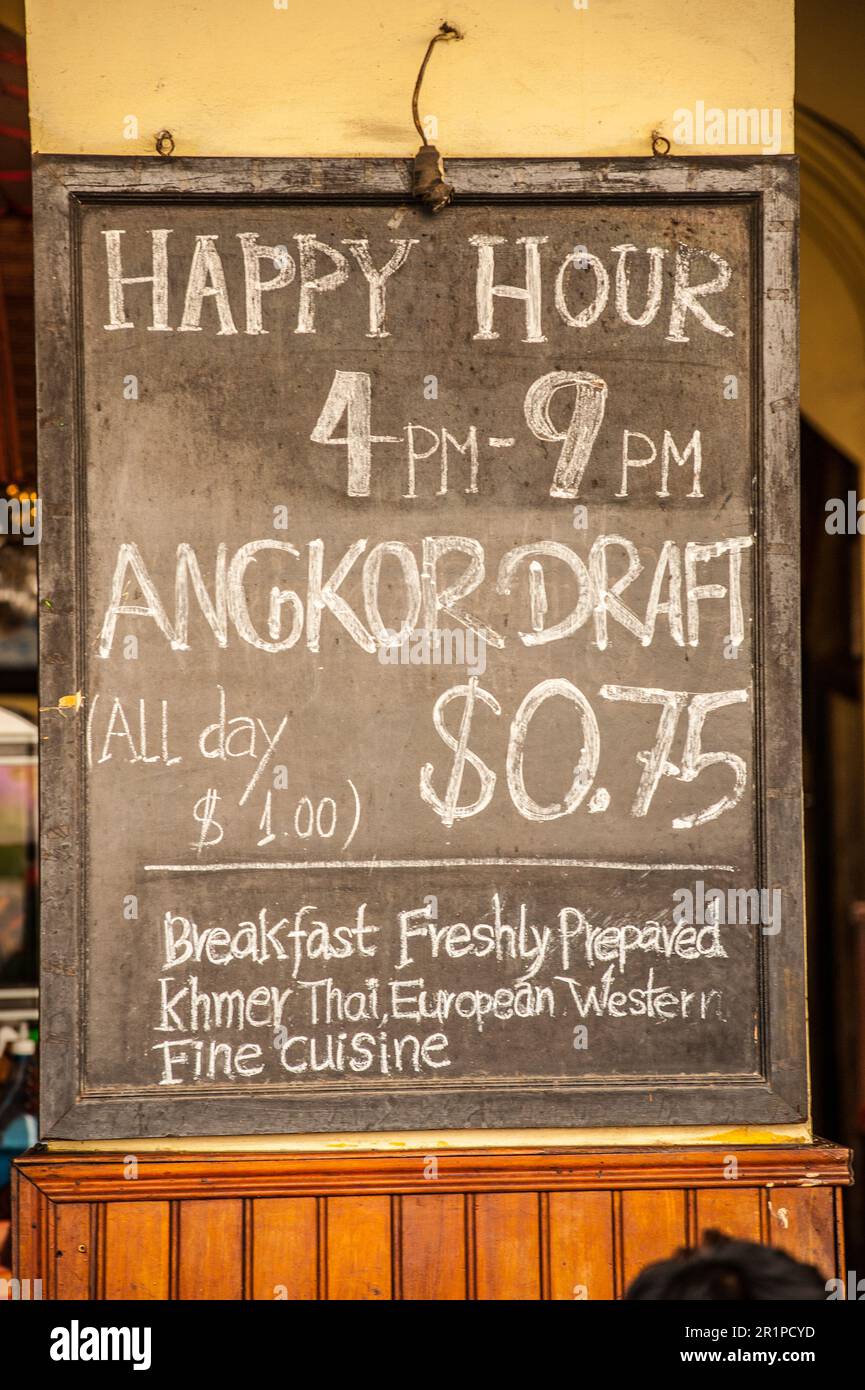 HAPPY HOUR
4PM-9PM
ANGKOR DRAFT
(All day $0.75
$1.00)
Breakfast Freshly Prepared
Khmer Thai, European Western
Fine Cuisine
alamy
Image ID: 2R1PCYD
www.alamy.com